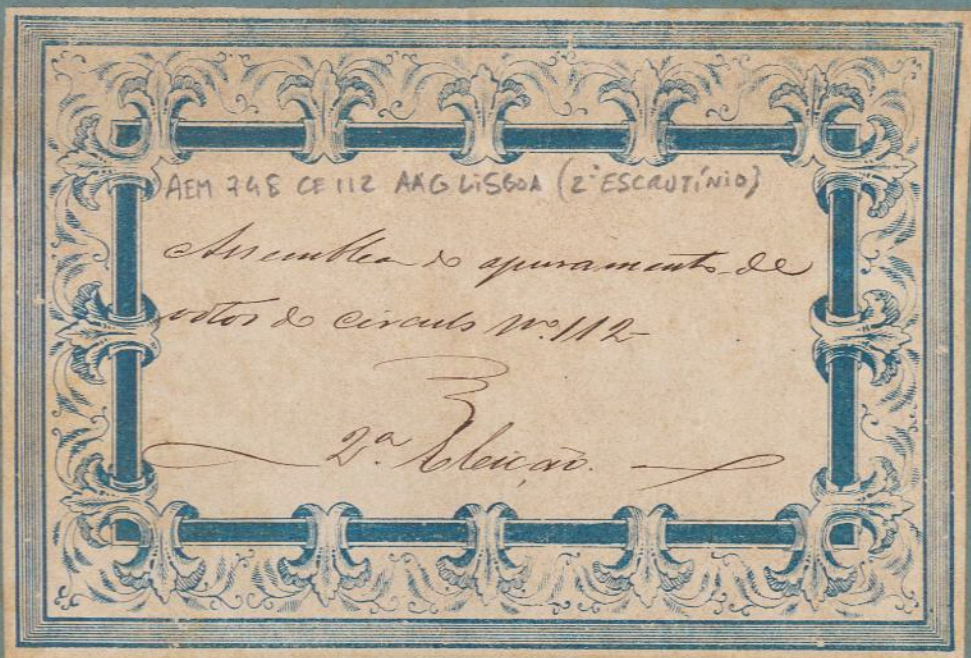 AEM 748 CE 112 AAG LISBOA (2º ESCRUTÍNIO)
Assemblea do apuramento de
votos do circulo Nº 112
2ª Eleição.